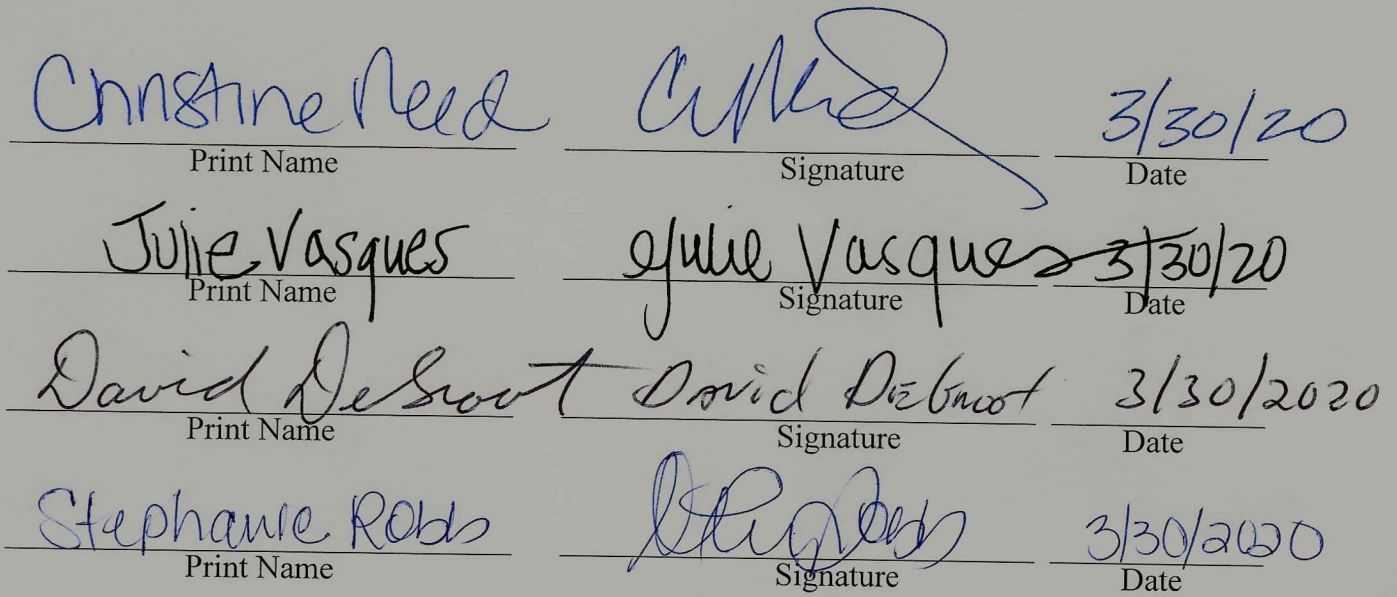 Christine Reed 3/30/20
Print Name Signature Date
Julie Vasques Julie Vasques 3/30/20
Print Name Signature Date
David DeGroot David DeGroot 3/30/2020
Print Name Signature Date
Stephanie Robb 3/30/2020
Print Name Signature Date